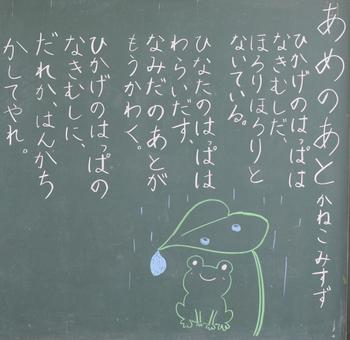 あめのあと かねこみすゞ
ひかげのはっぱは
なきむしだ、
ほろりほろりと
ないている。
ひなたのはっぱは
わらいだす、
なみだのあとが
もうかわく。
ひかげのはっぱの
なきむしに、
だれか、はんかち
かしてやれ。